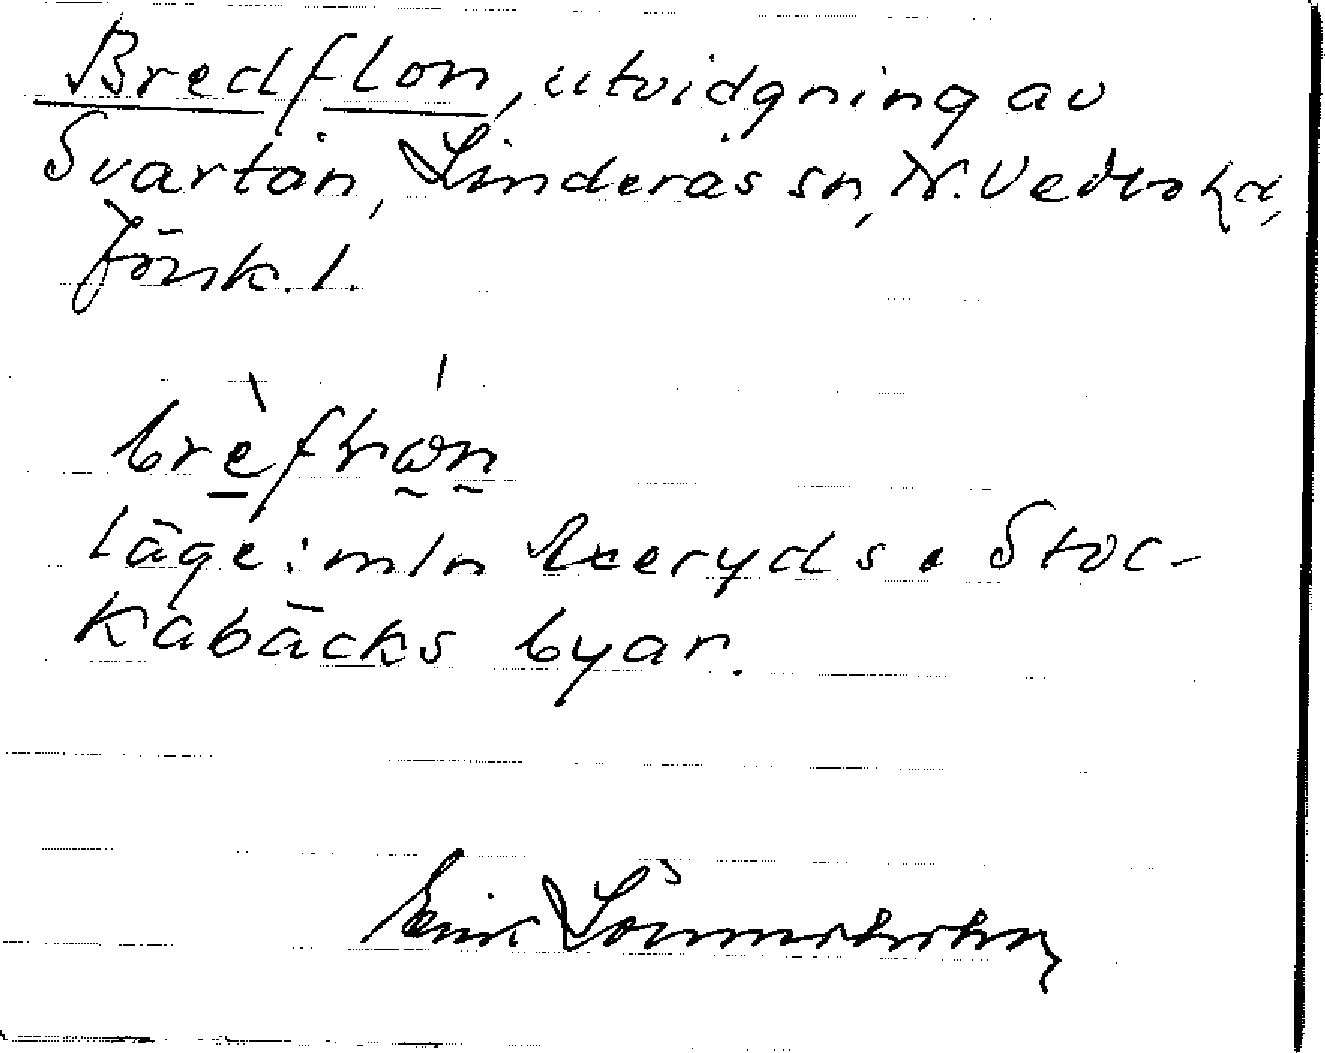 Bredflon, utvidgning av
Svartån, Linderås sn, N. Vedbo hd,
Jönk. l.
läge: mln
s o Stoc-
kabäcks byar.